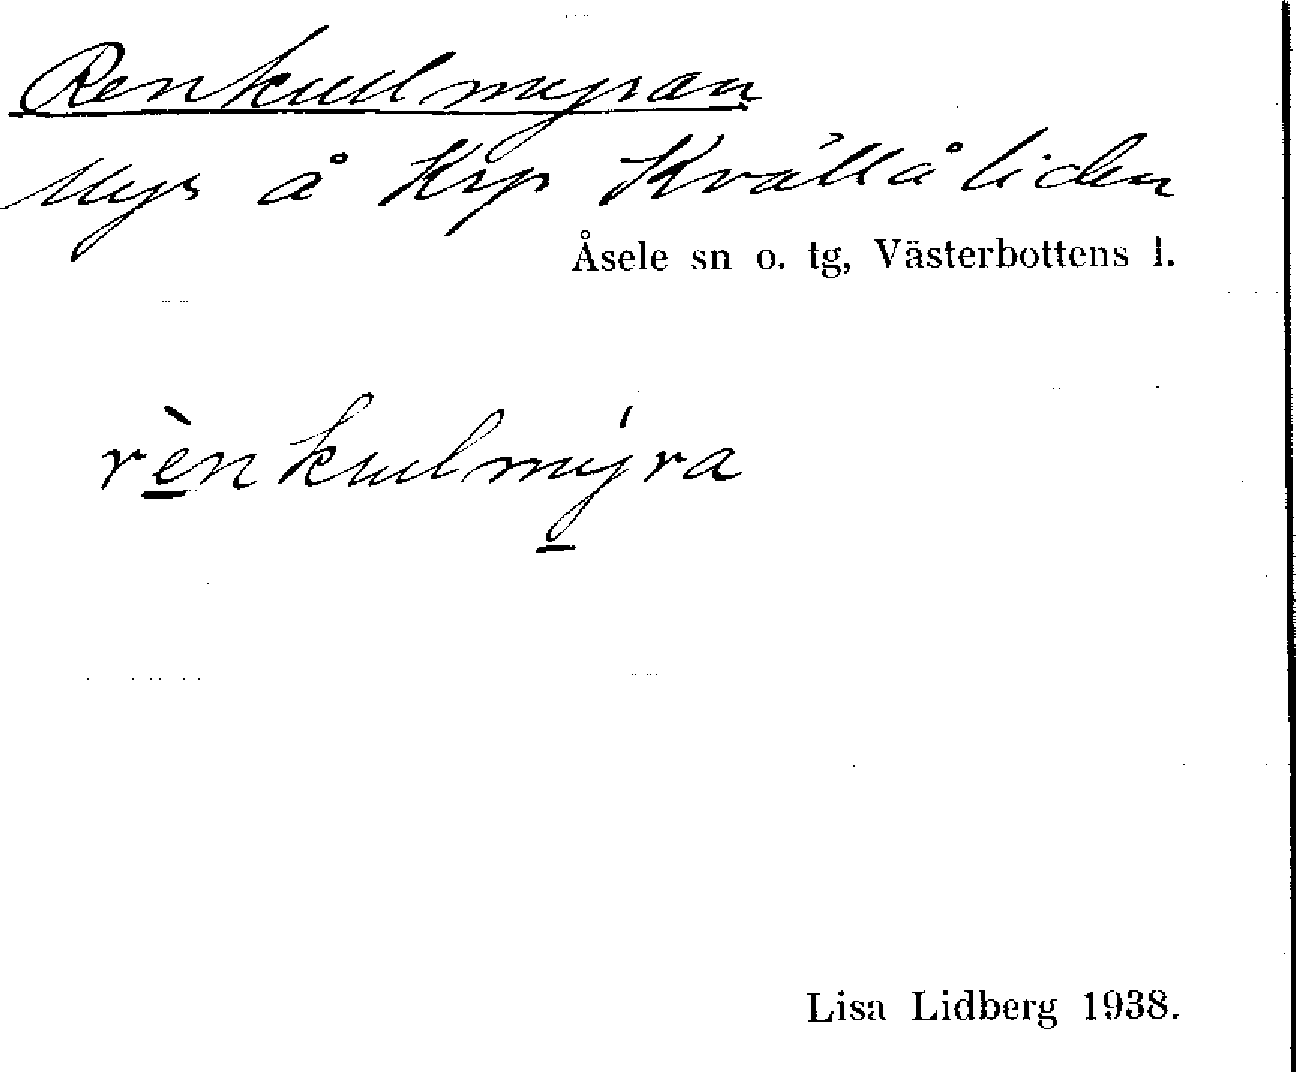 Renkullmyran
Myr å Krp Kvällåliden
Åsele sn o. tg, Västerbottens l.
rènkulmýra
Lisa Lidberg 1938.